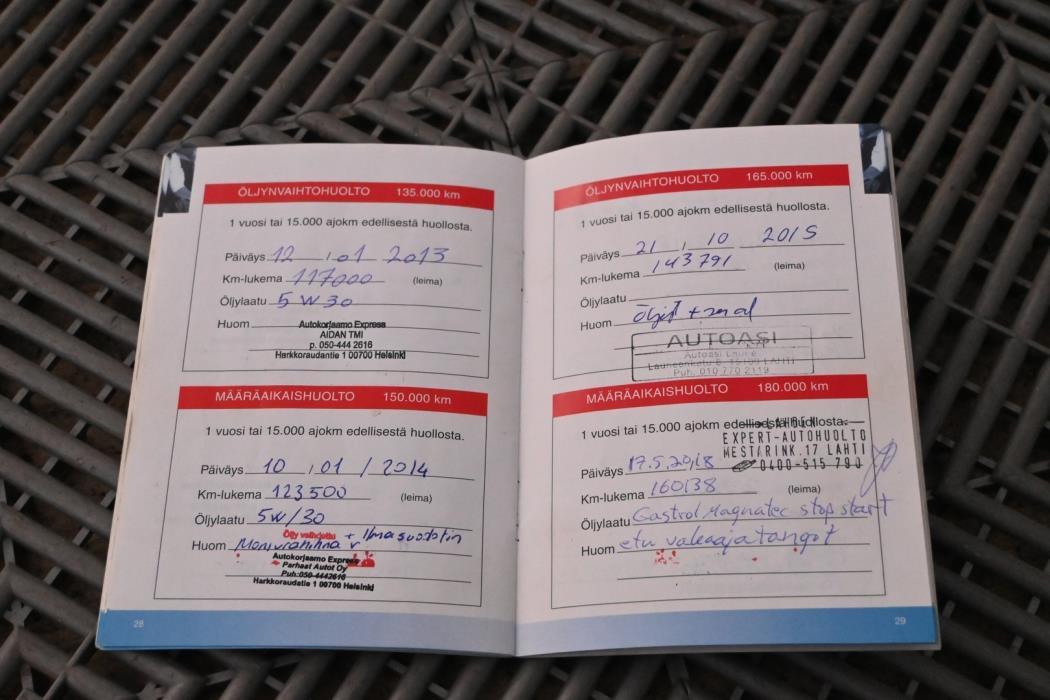 ÖLJYNVAIHTOHUOLTO 135.000 km
1 vuosi tai 15.000 ajokm edellisestä huollosta.
Päiväys 12 / 01 2013
Km-lukema 117000 (leima)
Öljylaatu 5 W 30
Huom
Autokorjaamo Express
AIDAN TMI
p. 050-444 2616
Harkkoraudantie 1 00700 Helsinki
MÄÄRÄAIKAISHUOLTO 150.000 km
1 vuosi tai 15.000 ajokm edellisestä huollosta.
Päiväys 10 / 01 / 2014
Km-lukema 123500 (leima)
Öljylaatu 5W/30
Öljy vaihdettu + Ilmasuodatin
Huom Moniurahihna
Autokorjaamo Express
Parhaat Autot Oy
Puh:050-4442616
Harkkoraudatie 1 00700 Helsinki
28
ÖLJYNVAIHTOHUOLTO 165.000 km
1 vuosi tai 15.000 ajokm edellisestä huollosta.
Päiväys 21 / 10 2015
Km-lukema 143791 (leima)
Öljylaatu
Huom öljyt +
AUTOASI
Autoasi
Launeenkatu LAHTI
Puh. 010 770 2119
MÄÄRÄAIKAISHUOLTO 180.000 km
1 vuosi tai 15.000 ajokm edellisestä huollosta.
EXPERT-AUTOHUOLTO
MESTARINK.17 LAHTI
0400-515 790
Päiväys 17.5.2018
Km-lukema 160138 (leima)
Öljylaatu Castrol Magnatec stop start
Huom etu vakaajatangot
29